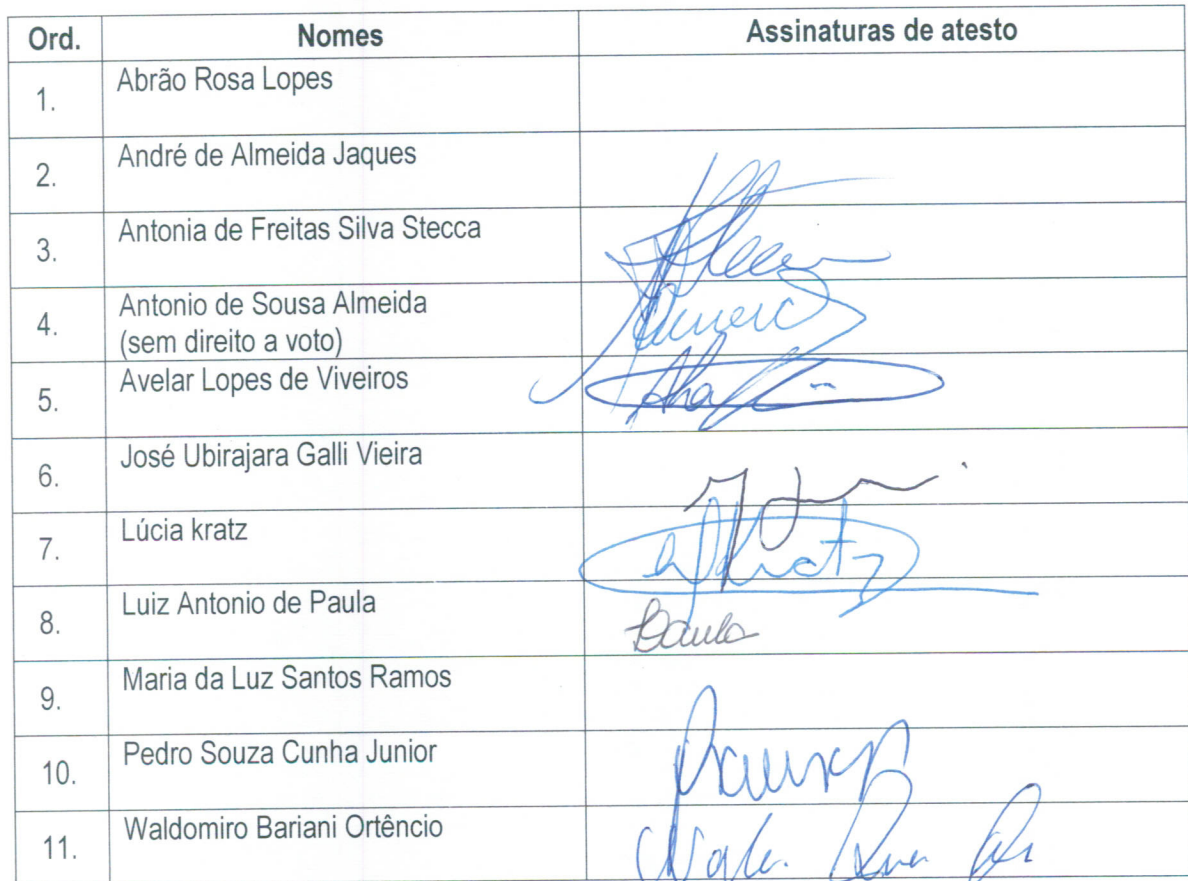 Ord. Nomes Assinaturas de atesto
1. Abrão Rosa Lopes
2. André de Almeida Jaques
3. Antonia de Freitas Silva Stecca
4. Antonio de Sousa Almeida
(sem direito a voto)
5. Avelar Lopes de Viveiros
6. José Ubirajara Galli Vieira
7. Lúcia kratz
Kratz
8. Luiz Antonio de Paula
Paula
9. Maria da Luz Santos Ramos
10. Pedro Souza Cunha Junior
11. Waldomiro Bariani Ortêncio